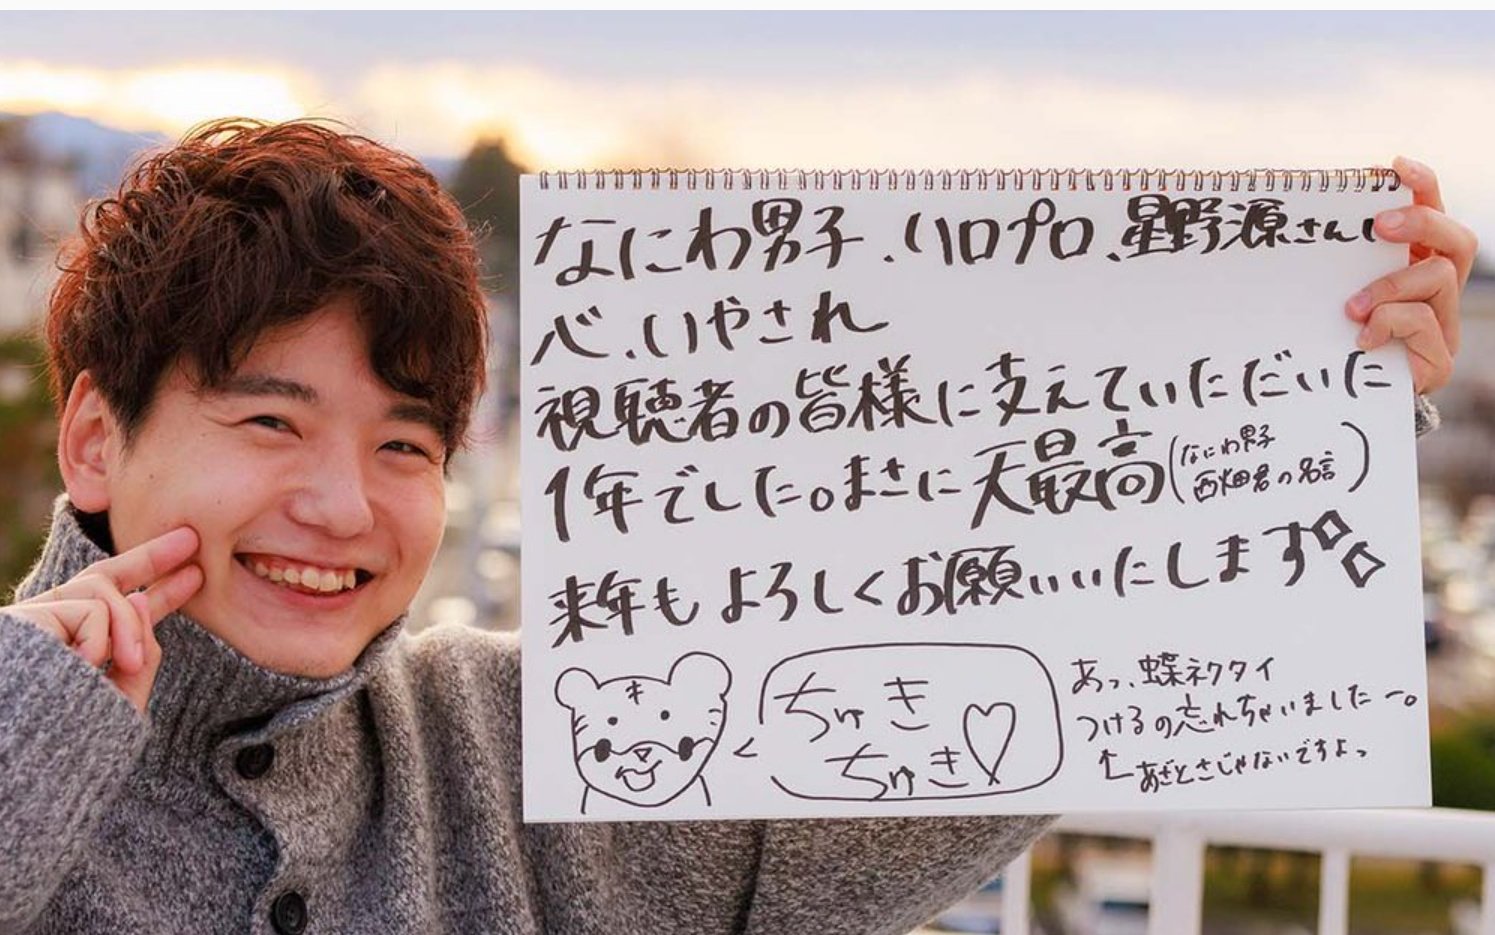 なにわ男子、ハロプロ、星野源さんに
心、いやされ
視聴者の皆様に支えていただいた
1年でした。まさに天最高(なにわ男子
西畑君の名言)
来年もよろしくお願いいたします
ちゅき
ちゅき♡
あっ、蝶ネクタイ
つけるの忘れちゃいましたー。
↑あざとさじゃないですよっ